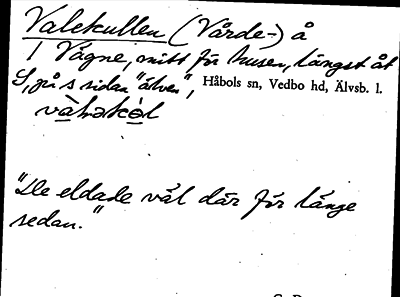 Valekullen (Vårde-) å
1 Vågne, mitt för husen, längst åt
S, på s sidan "älven", Håbols sn, Vedbo hd, Älvsb. l.
"De eldade väl där för länge
sedan."